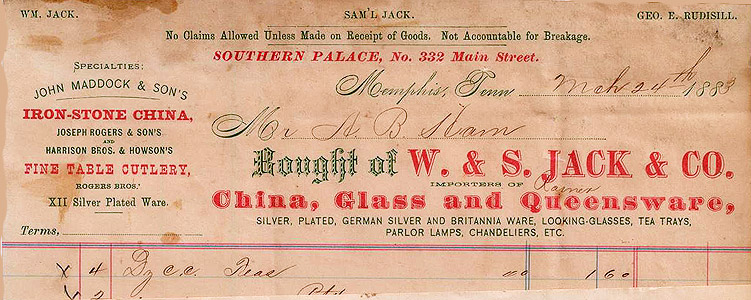 WM. JACK. SAM'L JACK. GEO. E. RUDISILL.
No Claims Allowed Unless Made on Receipt of Goods. Not Accountable for Breakage.
SOUTHERN PALACE, No. 332 Main Street.
Memphis, Tenn Mch 24th 1883
Mr A. B. Ham
Specialties:
JOHN MADDOCK & SON'S
IRON-STONE CHINA,
JOSEPH ROGERS & SON'S
AND
HARRISON BROS. & HOWSON'S
FINE TABLE CUTLERY,
ROGERS BROS.'
XII Silver Plated Ware.
Terms,
Bought of W. & S. JACK & CO.
IMPORTERS OF
China, Glass and Queensware,
SILVER, PLATED, GERMAN SILVER AND BRITANNIA WARE, LOOKING-GLASSES, TEA TRAYS,
PARLOR LAMPS, CHANDELIERS, ETC.
4 Dz C.C. Teas 1 60
2